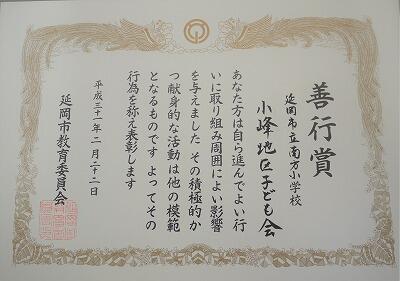 善行賞
延岡市立南方小学校
小峰地区子ども会
あなた方は自ら進んでよい行
いに取り組み周囲によい影響
を与えました その積極的か
つ献身的な活動は他の模範
となるものです よってその
行為を称え表彰します
平成三十一年二月二十二日
延岡市教育委員会